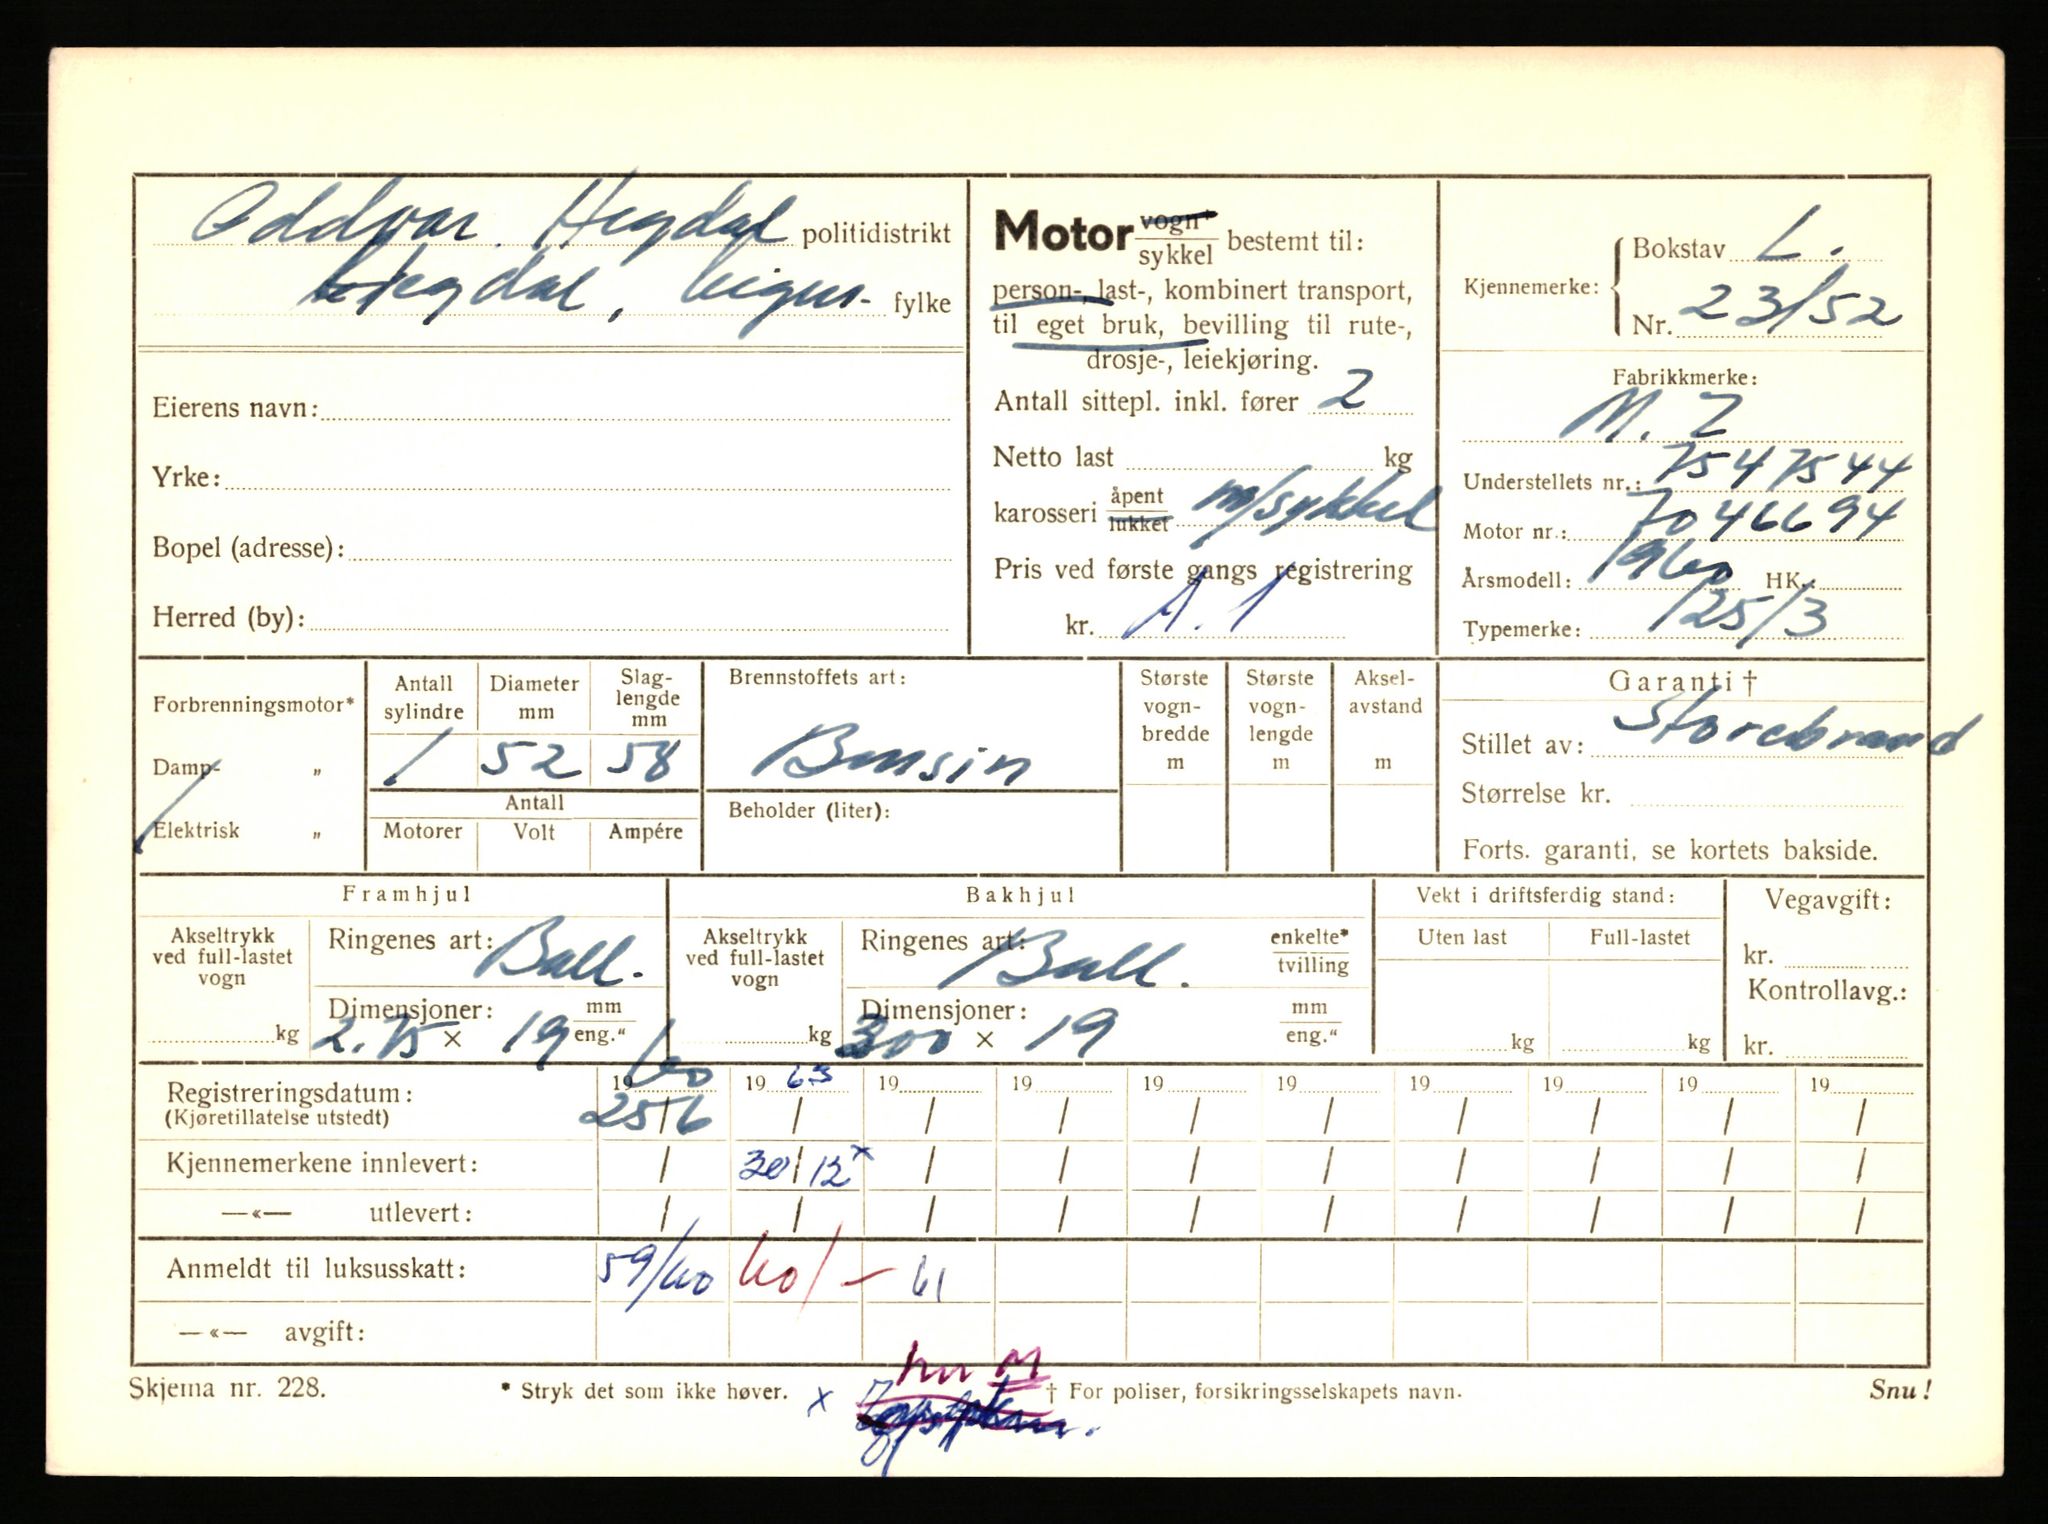 Oddvar Hegdal politidistrikt
Hegdal, Eigers- fylke
Eierens navn:
Yrke:
Bopel (adresse):
Herred (by):
Motor vogn† sykkel bestemt til:
person-, last-, kombinert transport,
til eget bruk, bevilling til rute-,
drosje-, leiekjøring.
Antall sittepl. inkl. fører 2
Netto last kg
karosseri åpent lukket m/sykkel
Pris ved første gangs registrering
kr. A. 1
Kjennemerke: Bokstav L.
Nr. 23152
Fabrikkmerke:
M. Z
Understellets nr.: 7547544
Motor nr.: 7046694
Årsmodell: 1960 HK.:
Typemerke: 125/3
Forbrenningsmotor*
Damp- „
Elektrisk „
Antall sylindre Diameter mm Slaglengde mm
1 52 58
Antall
Motorer Volt Ampére
Brennstoffets art:
Bensin
Beholder (liter):
Største vogn-bredde m
Største vogn-lengde m
Aksel-avstand m
Garanti †
Stillet av: Storebrand
Størrelse kr.
Forts. garanti, se kortets bakside.
Framhjul
Akseltrykk ved full-lastet vogn
kg
Ringenes art: Ball.
Dimensjoner: mm
2.75 x 19 eng."
Bakhjul
Akseltrykk ved full-lastet vogn
kg
Ringenes art: Ball. enkelte* tvilling
Dimensjoner: mm
300 x 19 eng."
Vekt i driftsferdig stand:
Uten last Full-lastet
kg kg
Vegavgift:
kr.
Kontrollavg.:
kr.
Registreringsdatum: 1960 1963 19 19 19 19 19 19 19 19
(Kjøretillatelse utstedt) 25/6 / / / / / / / / /
Kjennemerkene innlevert: / 30/12 x / / / / / / / /
—«— utlevert: / / / / / / / / / /
Anmeldt til luksusskatt: 59/60 60/- 61
—«— avgift:
Skjema nr. 228. * Stryk det som ikke høver. x † For poliser, forsikringsselskapets navn. Snu!